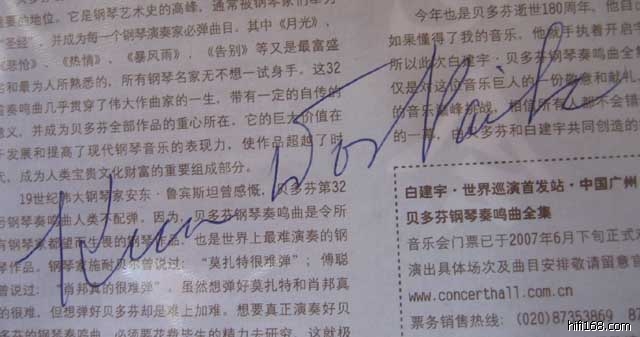 要的地位。它是钢琴艺术史的高峰，通常被钢琴家们
圣经"，并成为每一个钢琴演奏家必弹曲目。其中《月光》、
悲怆》、《热情》、《暴风雨》、《告别》等又是最富盛
名和最为人所熟悉的，所有钢琴名家无不想一试身手。这32
首奏鸣曲几乎贯穿了伟大作曲家的一生，带有一定的自传的
意义，并成为贝多芬全部作品的重心所在。它的巨大价值在
于发展和提高了现代钢琴音乐的表现力，使作品超越了时
代，成为人类宝贵文化财富的重要组成部分。
19世纪伟大钢琴家安东·鲁宾斯坦曾感慨，贝多芬第32
号钢琴奏鸣曲人类不配弹。因为，贝多芬钢琴奏鸣曲是令所
有钢琴家都望而生畏的钢琴作品，也是世界上最难演奏的钢
琴作品。钢琴家施耐贝尔曾说过："莫扎特很难弹"；傅聪
曾说过："肖邦真的很难弹"。虽然想弹好莫扎特和肖邦真
的很难，但想弹好贝多芬却是难上加难。想要真正演奏好贝
多芬的钢琴奏鸣曲，必须要花费毕生的精力去研究。这就极
今年也是贝多芬逝世180周年，他自
如果懂得了我的音乐，他就手执着开启宇
所以此次白建宇·贝多芬钢琴奏鸣曲全
仅是对这位音乐巨人的一份敬意和献礼
的音乐巅峰挑战，相信所有人都不会错
的一幕，由贝多芬和白建宇共同创造的
Kun Woo Paik
白建宇·世界巡演首发站·中国广州
贝多芬钢琴奏鸣曲全集
音乐会门票已于2007年6月下旬正式
演出具体场次及曲目安排敬请留意官
www.concerthall.com.cn
票务销售热线：(020)87353869 87
hifi168.com